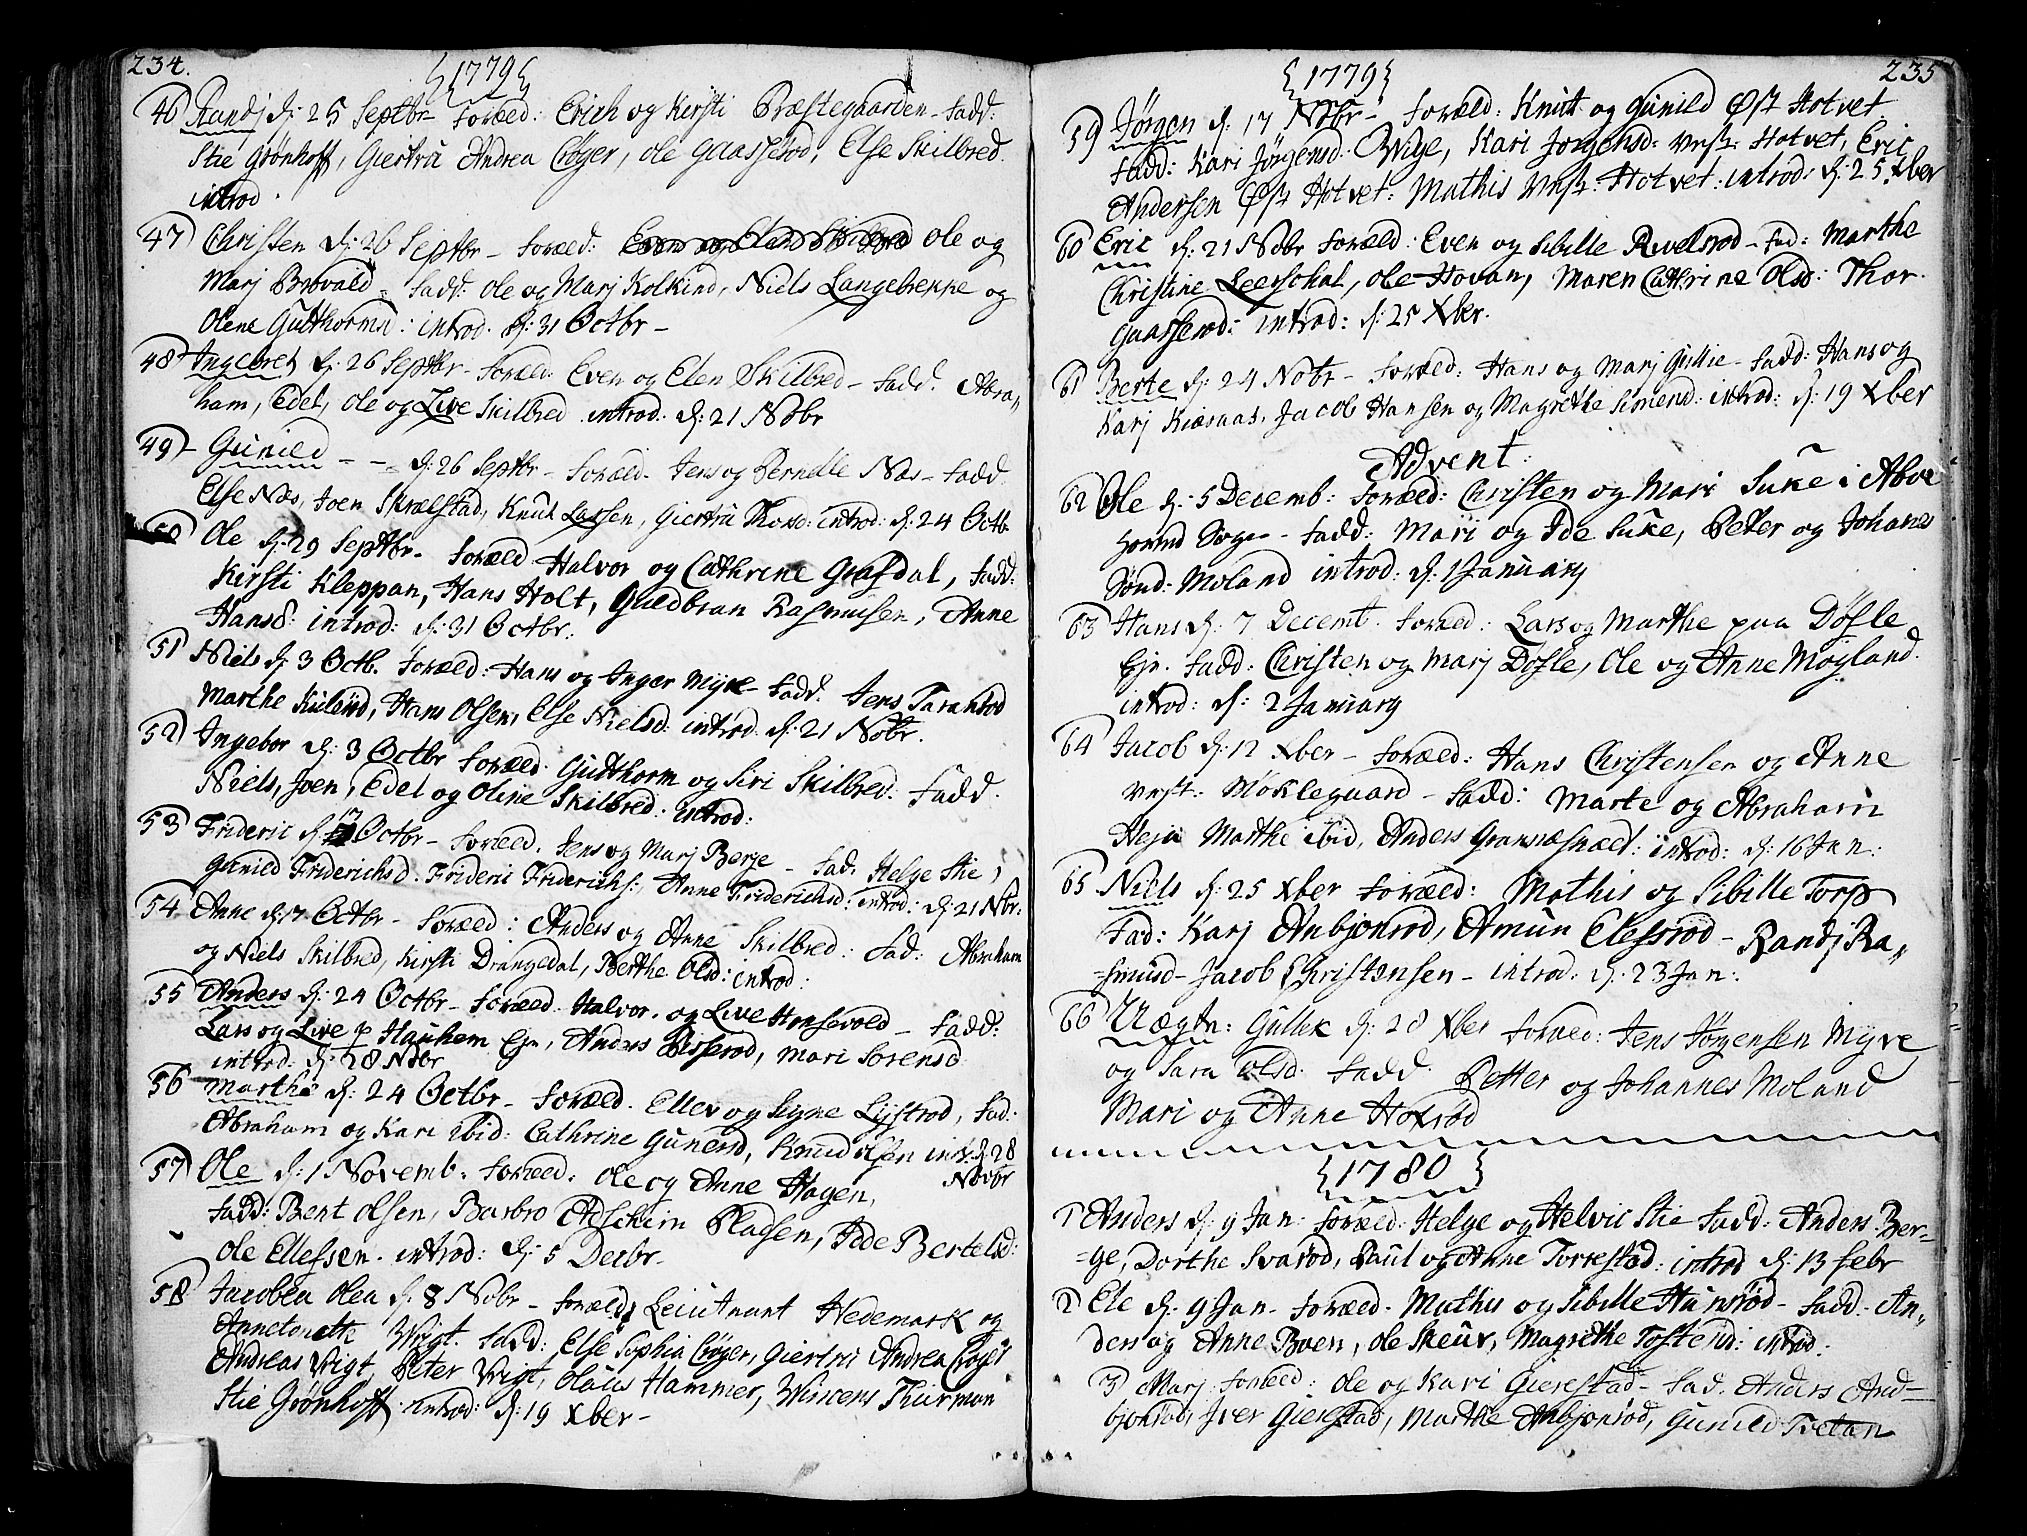 234.
{1779}
46 Randj d: 25 Septbr foræld: Erich og Kirsti Præstegaarden - fadd:
Stie Grønhoff, Giertru Andrea Crøger, Ole Gaasserød, Else Skilbred.
introd.
47 Christen d: 26 Septbr - foræld: Even og Elen Skilbred Ole og
Marj Brovald - fadd: Ole og Marj Kolkind, Niels Langebekke og
Olene Gutthormsd: introd. d: 31 Octbr -
48 Ingebret d: 26 Septbr - foræld: Even og Elen Skilbred - fadd. Abra„
ham, Edel, Ole og Live Skilbred introd. d: 21 Nobr
49 Gunild - - d: 26 Septbr - foræld. Jens og Pernelle Næs - fadd.
Else Næs, Joen Skrælstad, Knut Lassen, Giertru introd: d: 24 Octb.
50 Ole d: 29 Septbr. foræld Halvor og Cathrine Grafdal, fadd:
Kirsti Kleppan, Hans Holt, Guldbran Rasmusen, Anne
Hansd: introd: d: 31 Octbr.
51 Niels d: 3 Octb. foræld: Hans og Inger Myre - fadd. Jens Taraldrød
Marthe Hans Olsen, Else Nielsd: introd. d: 21 Nobr.
52 Ingebor d: 3 Octbr foræld. Gutthorm og Siri Skilbred. fadd.
Niels, Joen, Edel og Oline Skilbred. introd:
53 Frideric d: 17 Octbr - foræld. Jens og Marj Berge - fad. Helge Stie,
Gunild Friderichsd. Frideric Friderichs:, Anne Friderichsd: introd: d: 21 Nbr.
54 Anne d: 17 Octbr - foræld: Anders og Anne Skilbred: fad: Abraham
og Niels Skilbred, Kirsti Drangedal, Berthe Olsd: introd:
55 Anders d: 24 Octbr - foræld. Halvor og Live Honsevold - fadd:
Lars og Live p Haukem Eje, Anders Bisserød, Mari Sorensd
introd: d: 28 Nobr
56 Marthe d: 24 Octbr - foræld. Ellev og Signe Lystrød, fad:
Abraham og Kari ibid: Cathrine Gunersd, Knud Olsen int: d: 28
Novbr
57 Ole d: 1 Novemb. foræld: Ole og Anne Hagen,
fadd: Bent Olsen, Barbro Pladsen, Ide Bertelsd:
Ole Ellessen. introd: d: 5 Decbr.
58 Jacobea Olea d: 8 Nobr - foræld: Leiutnant Hedemark og
Annetoneth Wigt. fadd: Else Sophia Crøger, Giertru Andrea Crøger
Andreas Wigt, Peter Wigt, Claus Hammer, Wincens Thurman
Stie Grønhoff. introd: d: 19 Xber -
235
{1779}
59 Jørgen d: 17 Nobr - foræld: Knut og Gunild Øst Hotvet
fadd: Kari Jørgensd. Wige, Kari Jorgensd: Vest: Hotvet, Eric
Andersen Øst Hotvet: Mathis Vest: Hotvet: introd: d: 25 Xber
60 Eric d: 21 Nobr foræld: Even og Sibille Revelrød - fad: Marthe
Christine Leerschal, Ole Hovan, Maren Cathrine Olsd: Thor
Gaasserød: introd: d: 25 Xber.
61 Berte d: 24 Nobr - foræld: Hans og Marj Gullie - fadd: Hans og
Karj Kiæraas, Jacob Hansen og Magrethe Simensd: introd: d: 19 Xber
Advent:
62 Ole d: 5 Decemb: foræld: Christen og Mari Suke i Abve
Sogn - fadd: Marj og Ide Suke, Peter og Johanes
Sønd: Moland introd: d: 1 January
63 Hans d: 7 Decemb. foræld: Lars og Marthe paa Døfle
Eje. fadd: Christen og Marj Døfle, Ole og Anne Møyland.
introd: d: 2 January
64 Jacob d: 12 Xber - foræld: Hans Christensen og Anne
Vest: Møklegaard - fadd: Marte og Abraham
Heja Marthe ibid, Anders Gransæsnæet: introd: d: 16 Jan:
65 Niels d: 25 Xber foræld: Mathis og Sibille Torp
fad: Karj Anbjonrød, Amun Elessrød - Randj Ra„
=smusd - Jacob Christensen - introd: d: 23 Jan:
66 Uægte: Gullek d: 28 Xber foræld: Jens Jørgensen Myre
og Sara Olsd. fadd. Petter og Johannes Moland
Mari og Anne Hoxrød
{1780}
1 Anders d: 9 Jan: foræld: Helge og Helvic Stie fadd: Anders Ber-
=ge, Dorthe Svarød, Paul og Anne Torrestad: introd d: 13 febr
2 Ele d: 9 Jan - foræld. Mathis og Sibille Hunsrød - fadd. An„
ders og Anne Boen, Ole Skeur, Magrethe Tostensd: introd:
3 Marj. foræld: Ole og Kari Gierestad - fad. Anders And-
bjonrød, Iver Gierestad, Marthe Anbjonrød, Gunild Tvetan